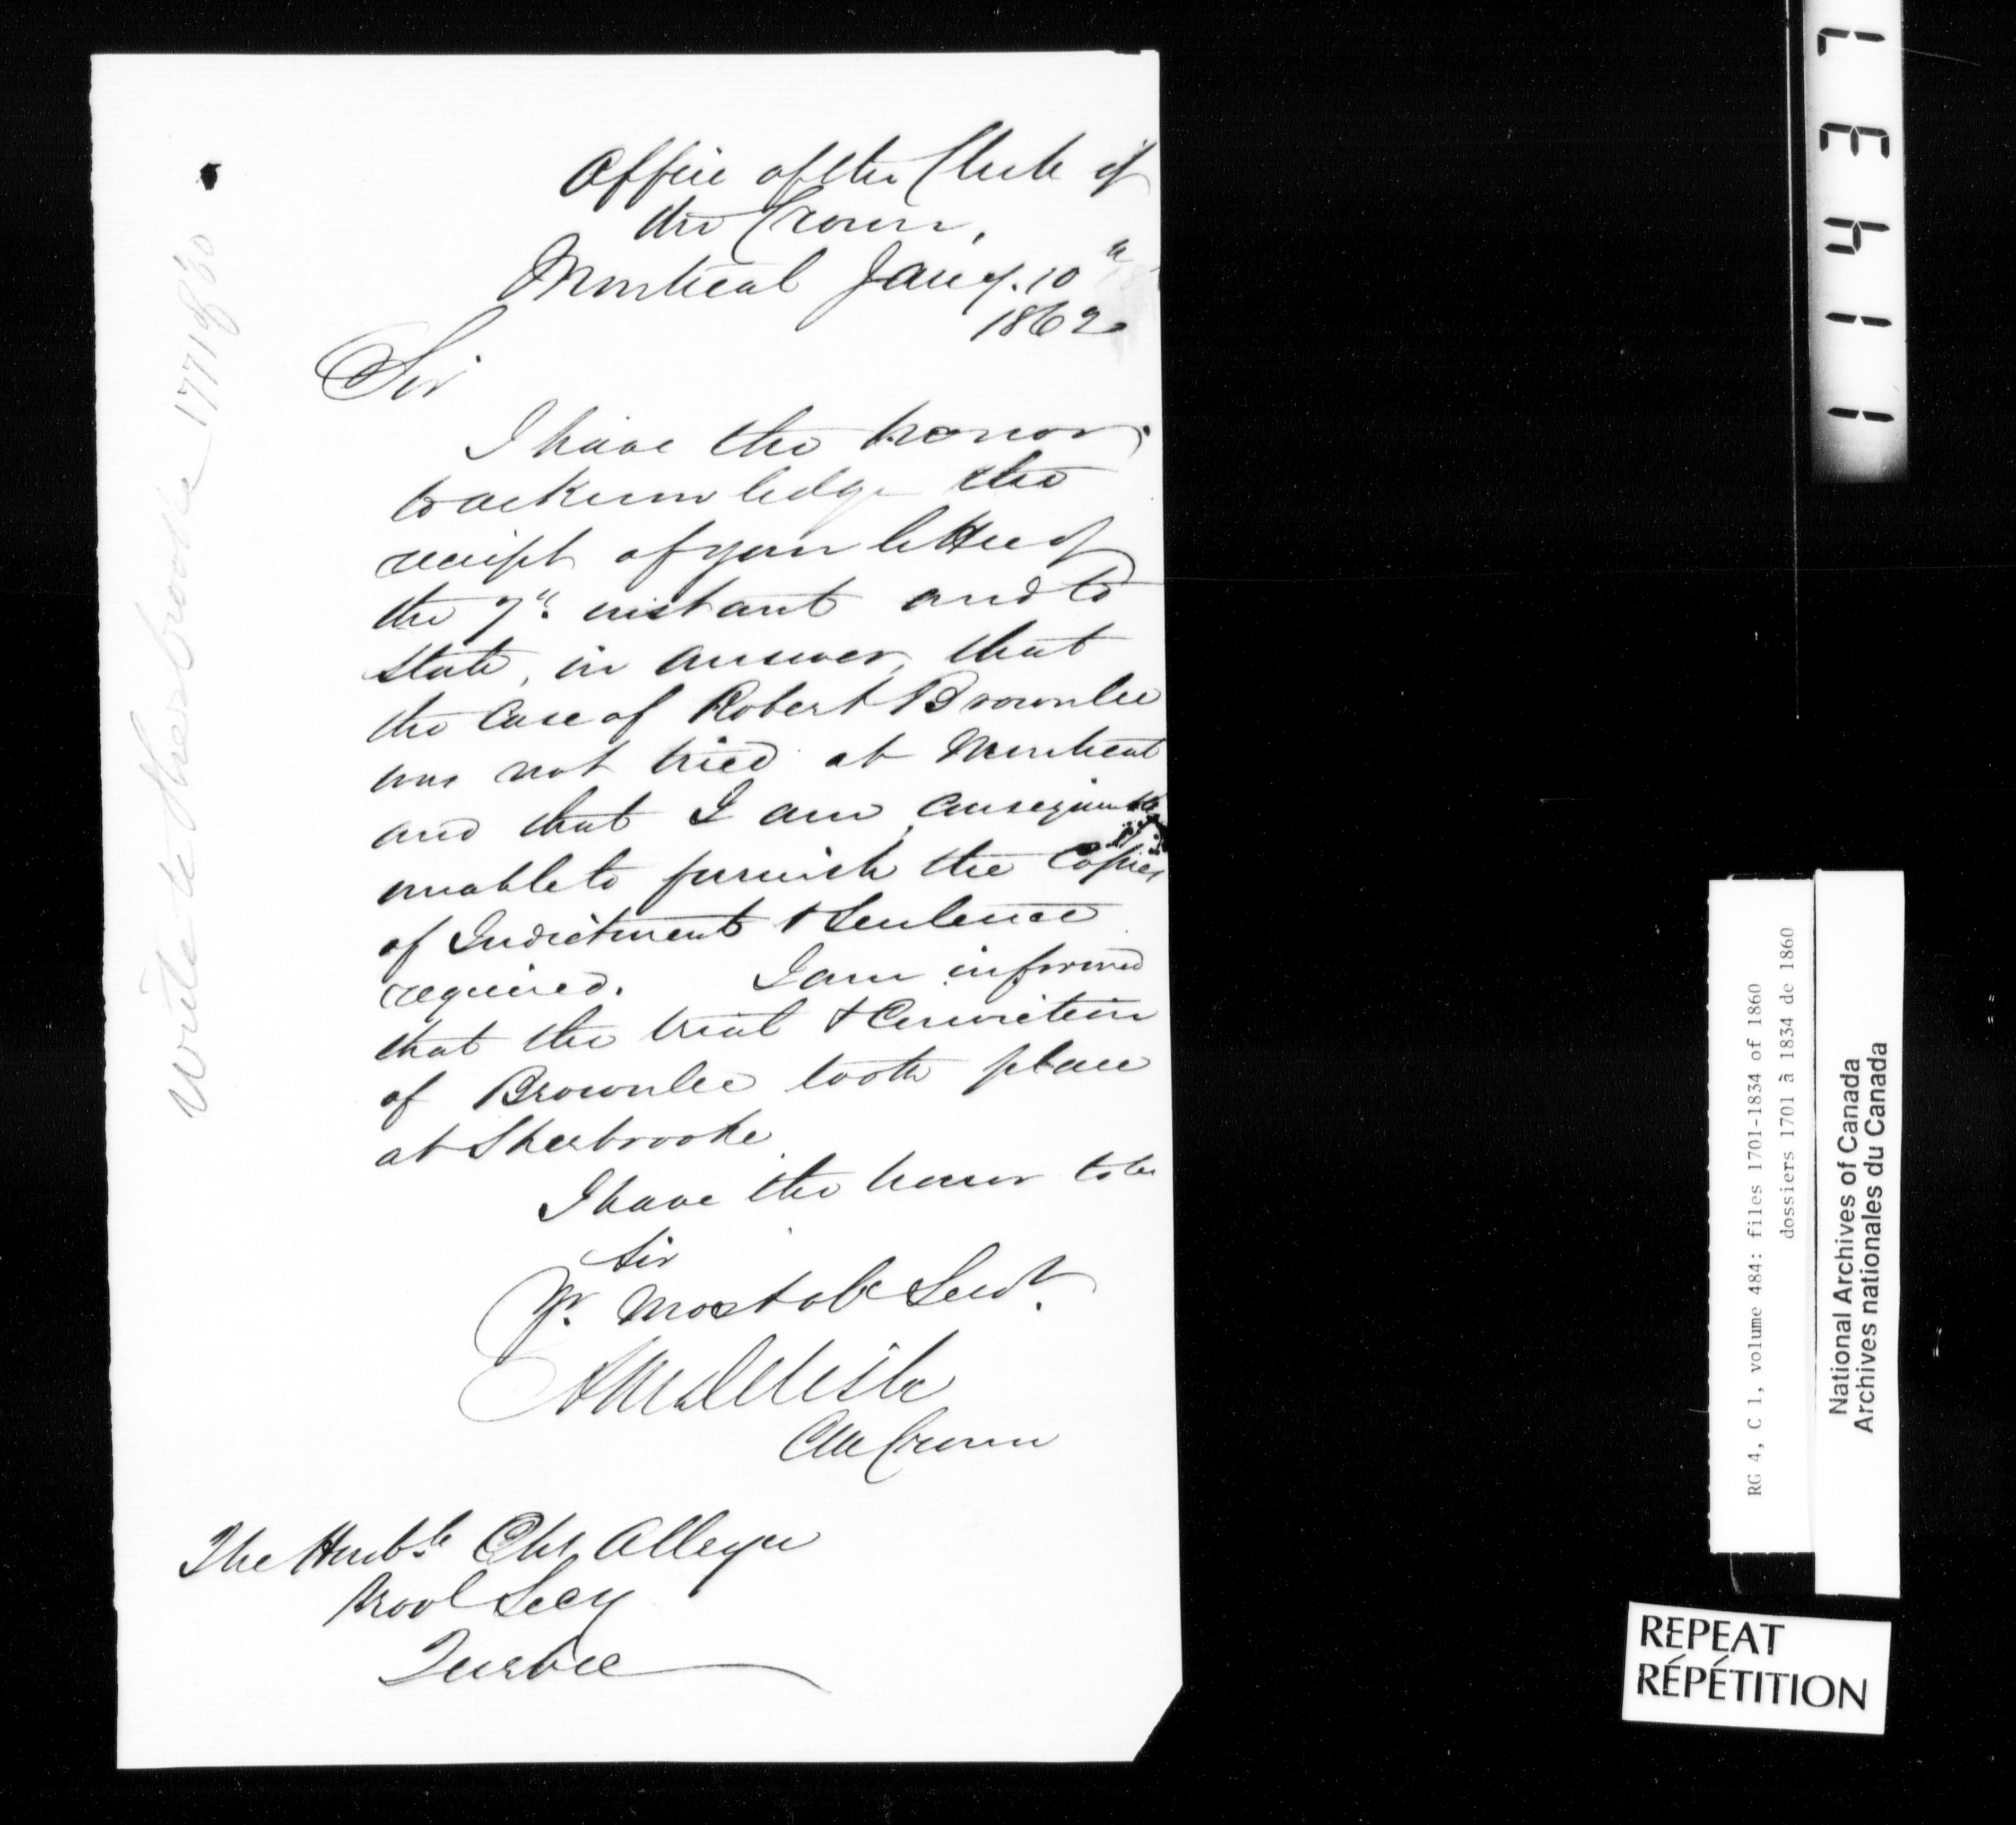 Office of the Clerk of
the Crown,
Montreal Jany. 10th
1862
Sir
I have the honor
to acknowledge the
receipt of your letter of
the 7th instant and to
state, in answer, that
the Case of Robert Brownlee
was not tried at Montreal
and that I am, consequently
unable to furnish the Copies
of Indictment & Sentence
required. I am informed
that the trial & Conviction
of Brownlee took place
at Sherbrooke.
I have the honor to be
Sir
Yr. Most ob Servt.
Clk Crown
The Honble Chs Alleyn
Provl Secy
Quebec
Write to Sherbrooke 1771 of 60
11437
RG 4, C 1, volume 484: files 1701-1834 of 1860
dossiers 1701 à 1834 de 1860
National Archives of Canada
Archives nationales du Canada
REPEAT
RÉPÉTITION